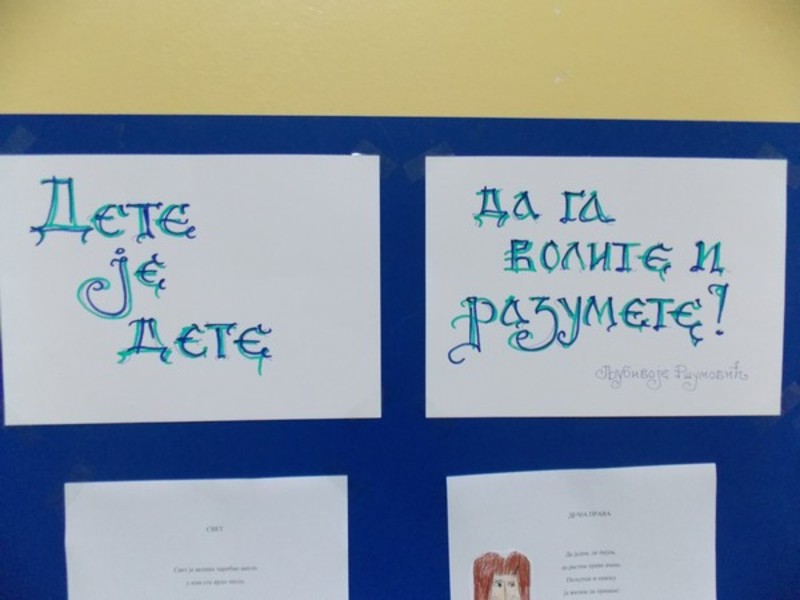 Дете
је
дете
да га
волите и
разумете!
Љубивоје Ршумовић
СВЕТ
Свет је велико чаробно место
ДЕЧЈА ПРАВА